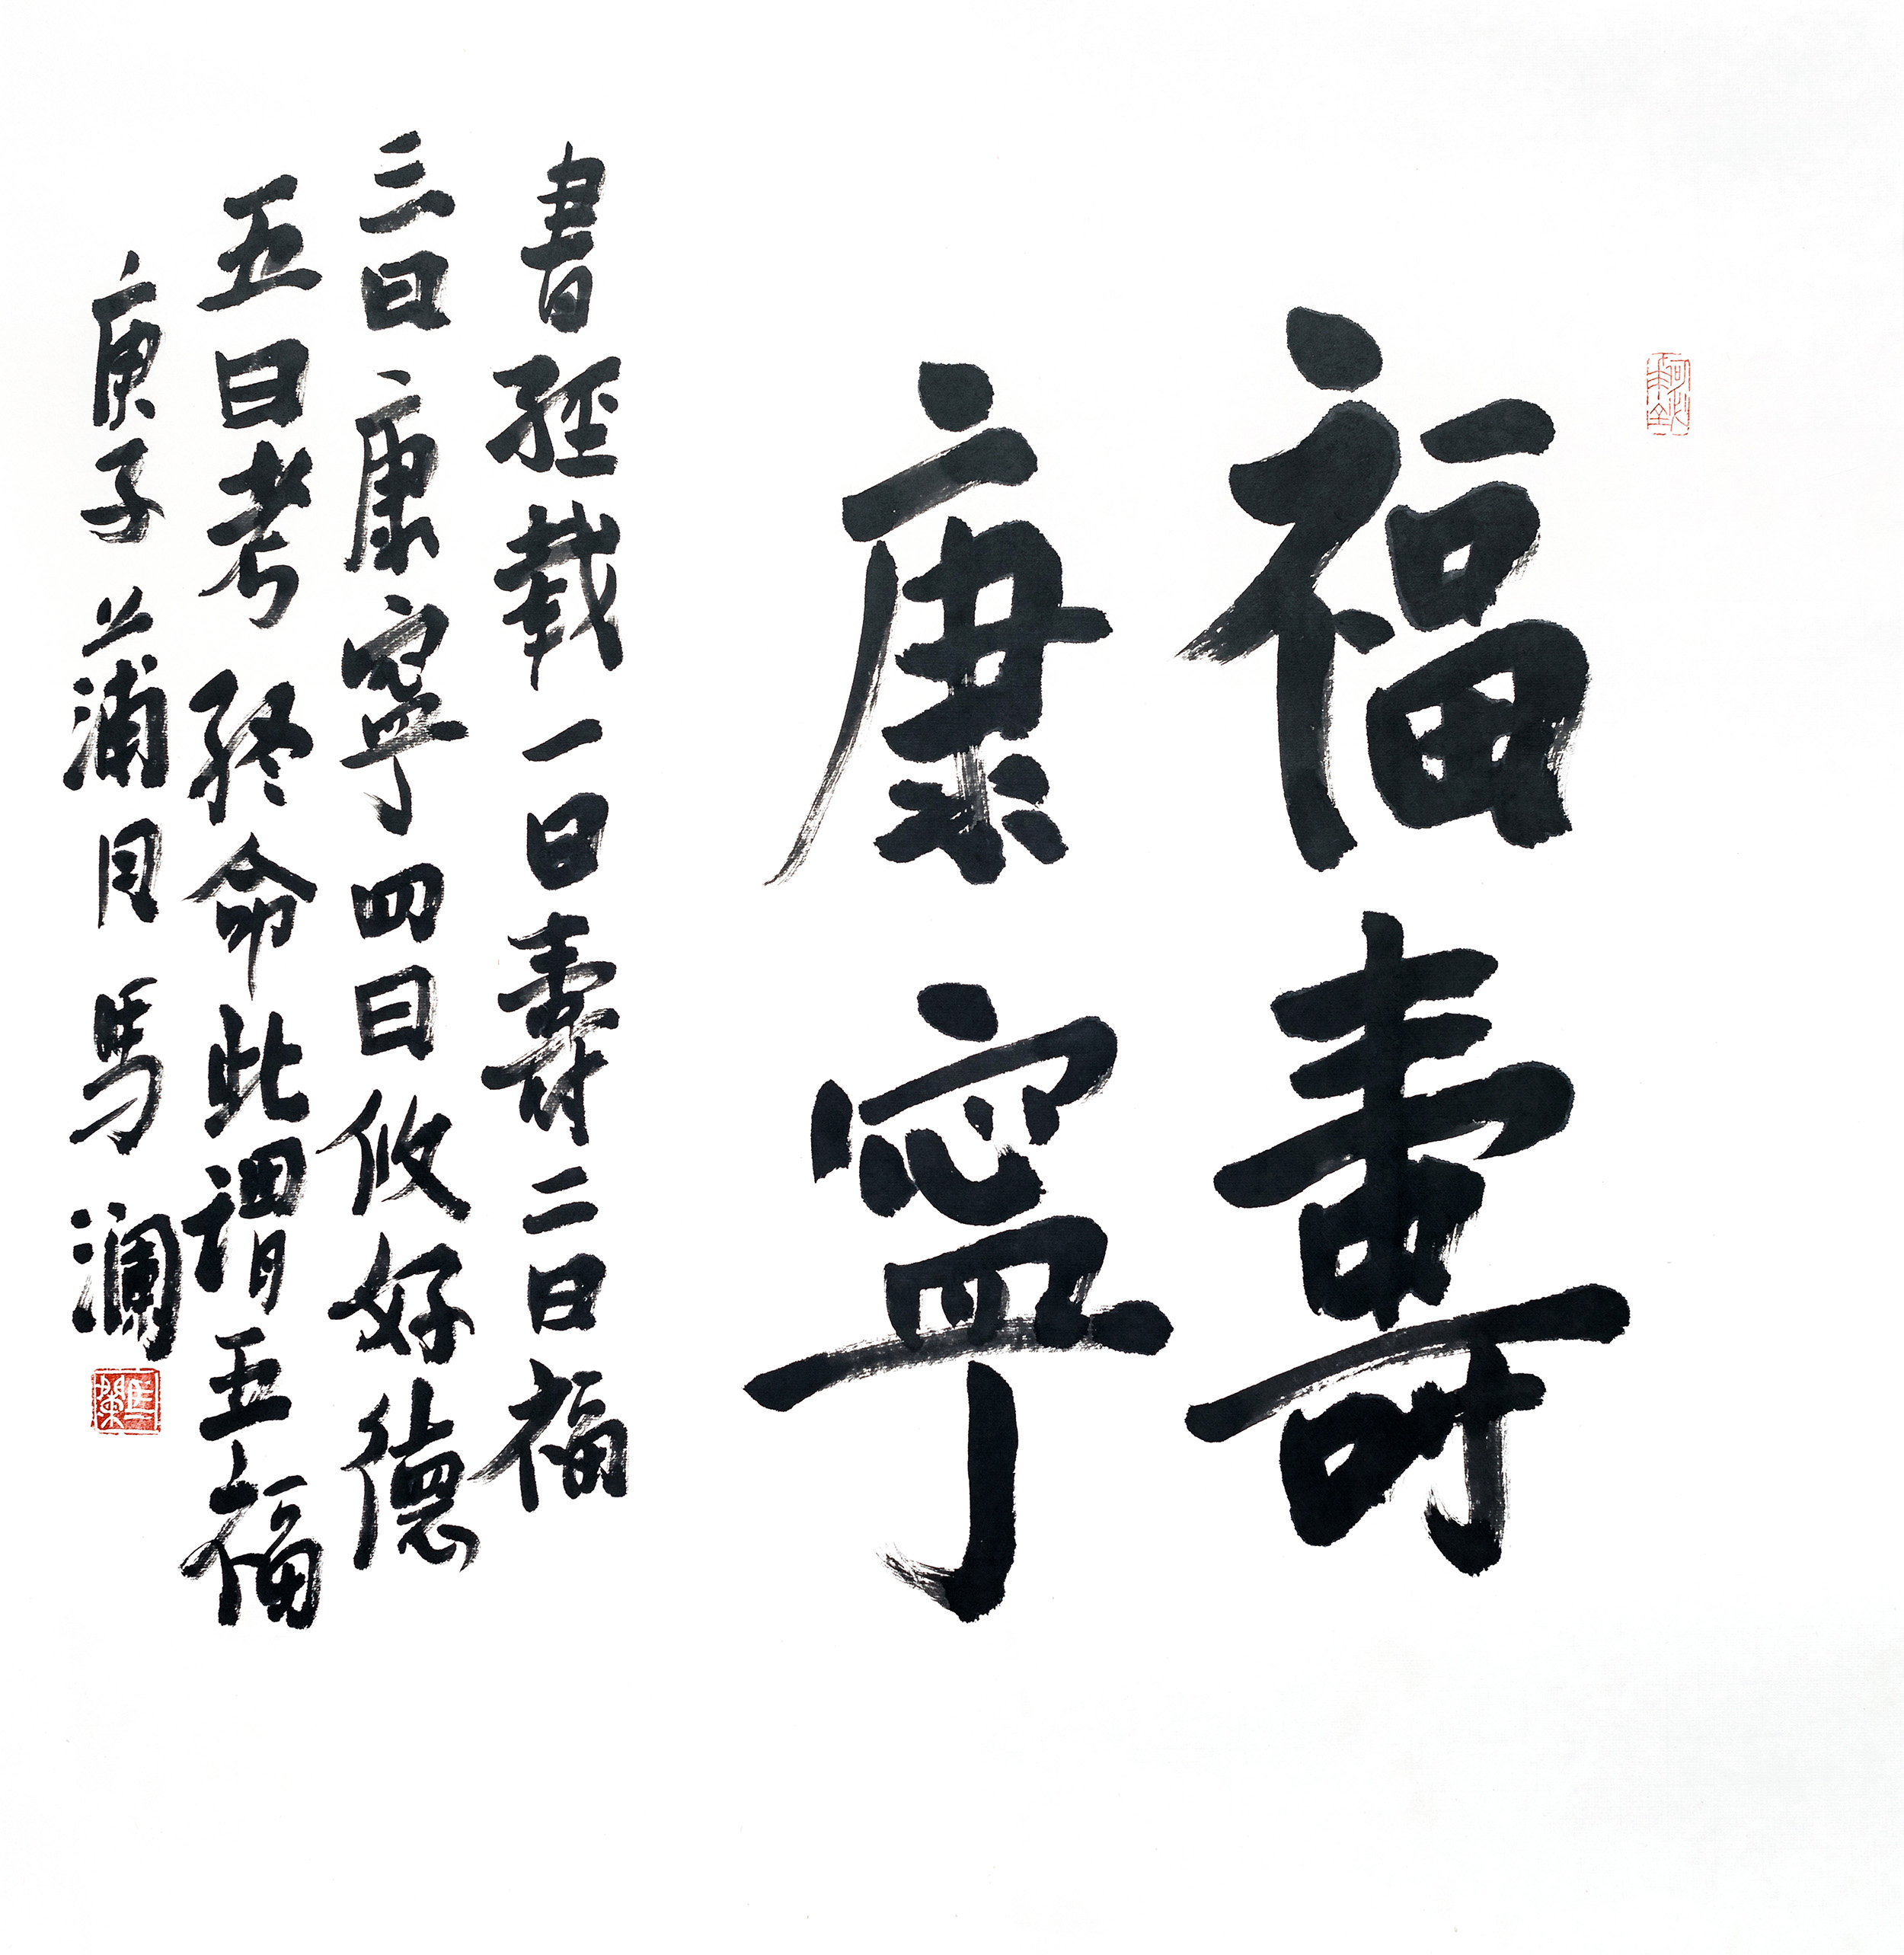 福壽
康寧
書經載一曰壽二曰福
三曰康寧四曰攸好德
五曰考終命此謂五福
庚子蒲月馬瀾